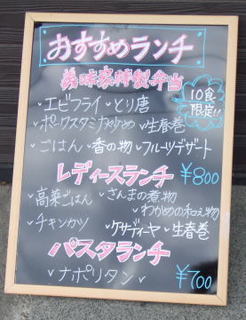 おすすめランチ
美味裏特製弁当
10食
限定!!
・エビフライ・とり唐
・ポークスタミナ炒め・生春巻
・ごはん・香の物・フルーツデザート
レディースランチ ¥800
高菜ごはん ・さんまの煮物
・わかめの和え物
チキンカツ ・ケサディーヤ・生春巻
パスタランチ
・ナポリタン・ ¥700